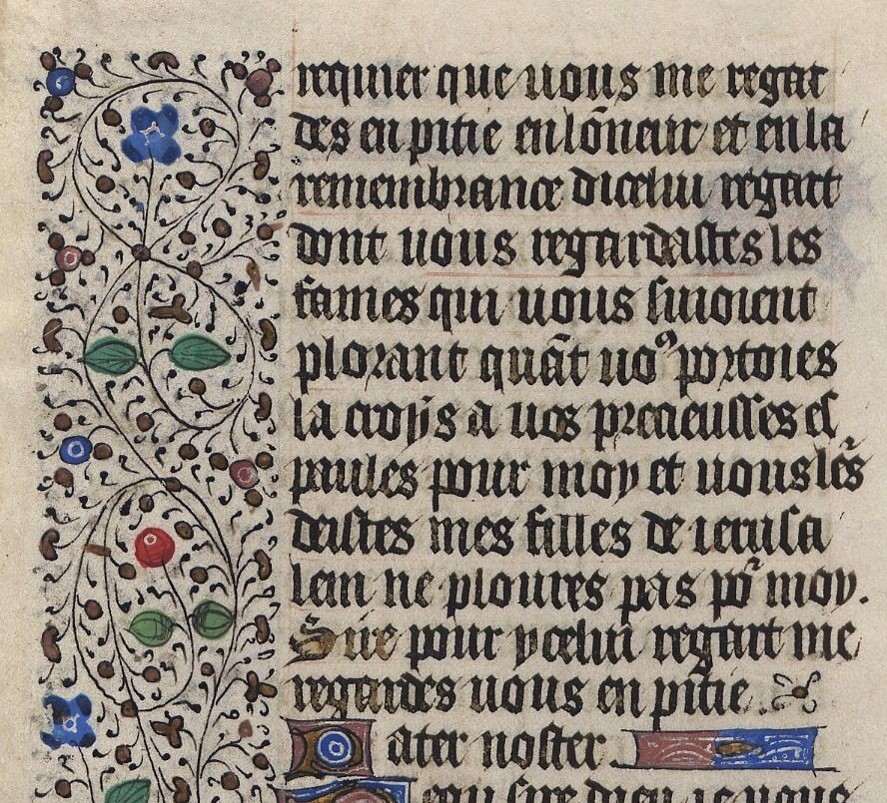 requier que uous me regar
des en pitie en lõneur et en la
remembrance dicelui regart
dont uous regardastes les
fames qui uous siuoient
plorant quãt uoꝰ porties
la croys a uos precieusses es
paules pour moy et uous lẽs
deistes mes filles de ierusa
lem ne ploures pas põ moy.
Sire pour ycelui regart me
regardes uous en pitie.
ater noster
eau sire dieu ie uous